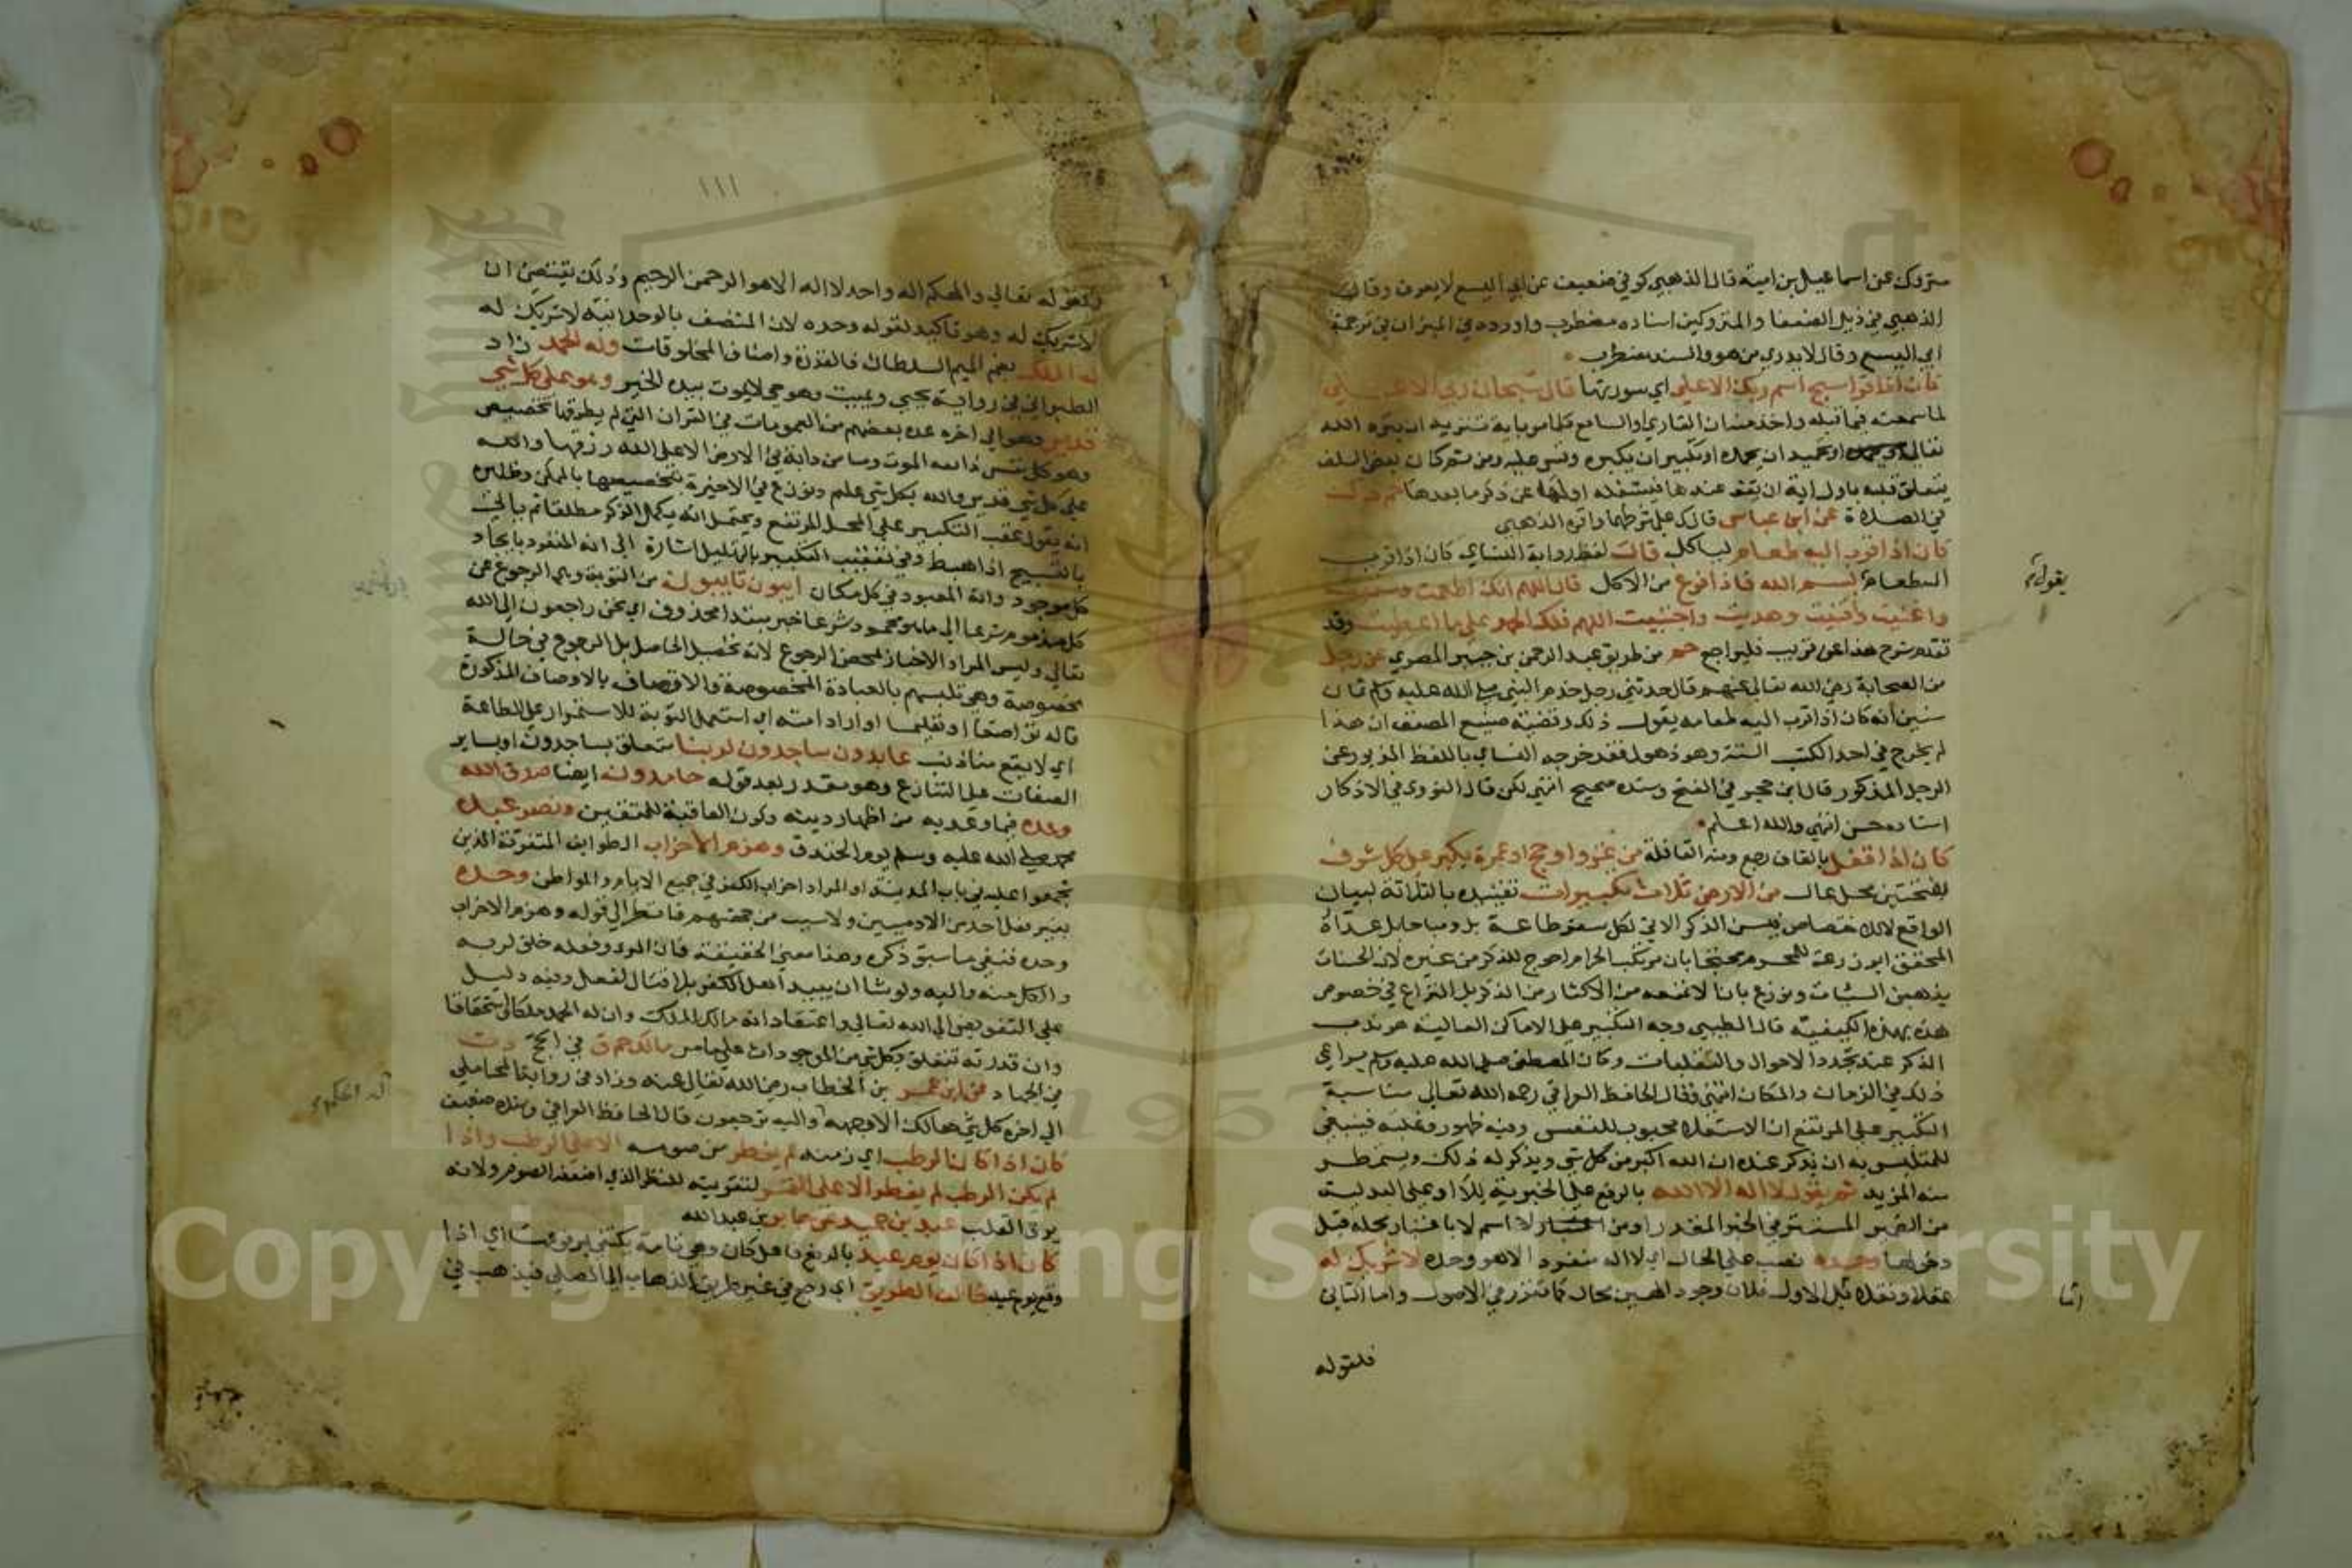 متروك عن اسماعيل بن امية قال الذهبي كوفي ضعيف عن ابي اليسع لايعرف وقال
الذهبي في ذيل الضعفا والمتروكين اسناده مضطرب واورده في الميزان في ترجمة
ابي اليسع وقال لا يدري من هو والسند مضطرب
كان اذا قرا سبح اسم ربك الاعلي اي سورتها قال سبحان ربي الاعلي
لما سمعته فيما قبله واخذ منه ان القاري او السامع كلما مر باية تنزيه ان ينزه الله
تعالي او تحميد ان يحمده او تكبير ان يكبره وقس عليه ومن ثم كان بعض السلف
يتعلق قلبه باول اية ان يقف عندها فيشغله اولها عن ذكر ما بعدها حم د ك
في الصلاة عن ابن عباس قال ك علي شرطهما واقره الذهبي
كان اذا قرب اليه طعام لياكل قال لفظ رواية النساي كان اذا قرب
اليه طعام يقول بسم الله فاذا فرغ من الاكل قال اللهم انك اطعمت وسقيت
واغنيت واقنيت وهديت واجتبيت اللهم فلك الحمد علي ما اعطيت وقد
تقدم شرح هذا عن قريب فليراجع حم من طريق عبد الرحمن بن جبير المصري عن رجل
من الصحابة رضي الله تعالي عنهم قال حدثني رجل خدم النبي صلي الله عليه وسلم ثمان
سنين انه كان اذا قرب اليه طعامه يقول ذلك وقضية صنيع المصنف ان هذا
لم يخرج في احد الكتب الستة وهو ذهول فقد خرجه النساي باللفظ المزبور عن
الرجل المذكور قال ابن حجر في الفتح وسنده صحيح انتهي لكن قال النووي في الاذكار
اسناده حسن انتهي والله اعلم
كان اذا قفل بالقاف رجع ومنه القافلة من غزو او حج او عمرة يكبر علي كل شرف
بفتحتين محل عال من الارض ثلاث تكبيرات تقييده بالثلاثة لبيان
الواقع لا للاختصاص فيسن الذكر الاتي لكل سفر طاعة بل ومباحا بل عداه
المحقق ابو زرعة للمحرم محتجا بان مرتكب الحرام احوج للذكر من غيره لان الحسنات
يذهبن السيئات ونوزع بانا لا نمنعه من الاكثار من الذكر بل النزاع في خصوص
هذه بهذه الكيفية قال الطيبي وجه التكبير علي الاماكن العالية هو ندب
الذكر عند تجدد الاحوال والتقلبات وكان المصطفي صلي الله عليه وسلم يراعي
ذلك في الزمان والمكان انتهي وقال الحافظ العراقي رحمه الله تعالي مناسبة
التكبير علي المرتفع ان الاستعلاء محبوب للنفس وفيه ظهور وغلبة فينبغي
للمتلبس به ان يذكر عنده ان الله اكبر من كل شي ويذكر له ذلك ويستمطر
منه المزيد ثم يقول لا اله الا الله بالرفع علي الخبرية للا او علي البدلية
من الضمير المستتر في الخبر المقدر او من اسم لا باعتبار محله قبل
دخولها وحده نصب علي الحال اي لا اله منفرد الا هو وحده لا شريك له
عقلا ونقلا اما الاول فلان وجود الهين محال كما تقرر في الاصول واما الثاني
فلقوله
١١١
فلقوله تعالي والهكم اله واحد لا اله الا هو الرحمن الرحيم وذلك يقتضي ان
لا شريك له وهو تاكيد لقوله وحده لان المتصف بالوحدانية لا شريك له
له الملك بضم الميم السلطان والقدرة واصناف المخلوقات وله الحمد زاد
الطبراني في رواية يحيي ويميت وهو حي لا يموت بيده الخير وهو علي كل شي
قدير وهو الي اخره عده بعضهم من العمومات في القران التي لم يطرقها تخصيص
وهو كل نفس ذايقة الموت وما من دابة في الارض الا علي الله رزقها والله
علي كل شي قدير والله بكل شي عليم ونوزع في الاخيرة بتخصيصها بالممكن وظاهره
انه يقول عقب التكبير علي المحل المرتفع ويحتمل انه يكمل الذكر مطلقا ثم ياتي
بالتسبيح اذا هبط وفي تعقيب التكبير بالتهليل اشارة الي انه المنفرد بايجاد
كل موجود وانه المعبود في كل مكان ايبون تايبون من التوبة وهي الرجوع عن
كل مذموم شرعا الي ما هو محمود شرعا خبر مبتدا محذوف اي نحن راجعون الي الله
تعالي وليس المراد الاخبار بمحض الرجوع لانه تحصيل الحاصل بل الرجوع في حالة
مخصوصة وهي تلبسهم بالعبادة المخصوصة والاتصاف بالاوصاف المذكورة
قاله تواضعا او تعليما او اراد امته او استعمل التوبة للاستمرار علي الطاعة
اي لا يقع منا ذنب عابدون ساجدون لربنا متعلق بساجدون او بساير
الصفات علي التنازع وهو مقدر بعد قوله حامدون ايضا صدق الله
وعده فيما وعد به من اظهار دينه وكون العاقبة للمتقين ونصر عبده
محمد صلي الله عليه وسلم يوم الخندق وهزم الاحزاب الطوايف المتفرقة الذين
تجمعوا عليه في باب المدينة او المراد احزاب الكفر في جميع الايام والمواطن وحده
بغير فعل احد من الادميين ولا سبب من جهتهم فانظر الي قوله وهزم الاحزاب
وحده فنفي ما سبق ذكره وهذا معني الحقيقة فان المرء وفعله خلق لربه
والكل منه واليه ولو شا ان يبيد اهل الكفر بلا قتال لفعل وفيه دليل
علي التفويض الي الله تعالي واعتقاد انه مالك الملك وان له الحمد ملكا واستحقاقا
وان قدرته تتعلق بكل شي من الموجودات علي ما مر مالك حم ق في الحج د ت
في الجهاد عن ابن عمر بن الخطاب رضي الله تعالي عنه وزاد في رواية المحاملي
الي اخره كل شي هالك الا وجهه له الحكم واليه ترجعون قال الحافظ العراقي وسنده ضعيف
كان اذا كان الرطب اي زمنه لم يفطر من صومه الا علي الرطب واذا
لم يكن الرطب لم يفطر الا علي التمر لتقويته للنظر الذي اضعفه الصوم ولانه
يرق القلب عبد بن حميد عن جابر بن عبد الله
كان اذا كان يوم عيد بالرفع فاعل كان وهي تامة تكتفي بمرفوعها اي اذا
وقع يوم عيد خالف الطريق اي رجع في غير طريق الذهاب الي المصلي فيذهب في
Copyright © King Saud University
1957